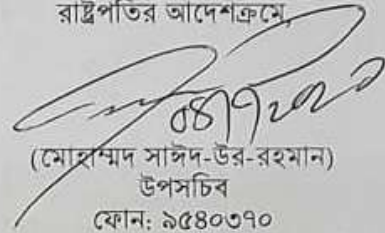 রাষ্ট্রপতির আদেশক্রমে,
(মোহাম্মদ সাঈদ-উর-রহমান)
উপসচিব
ফোন: ৯৫৪০৩৭০